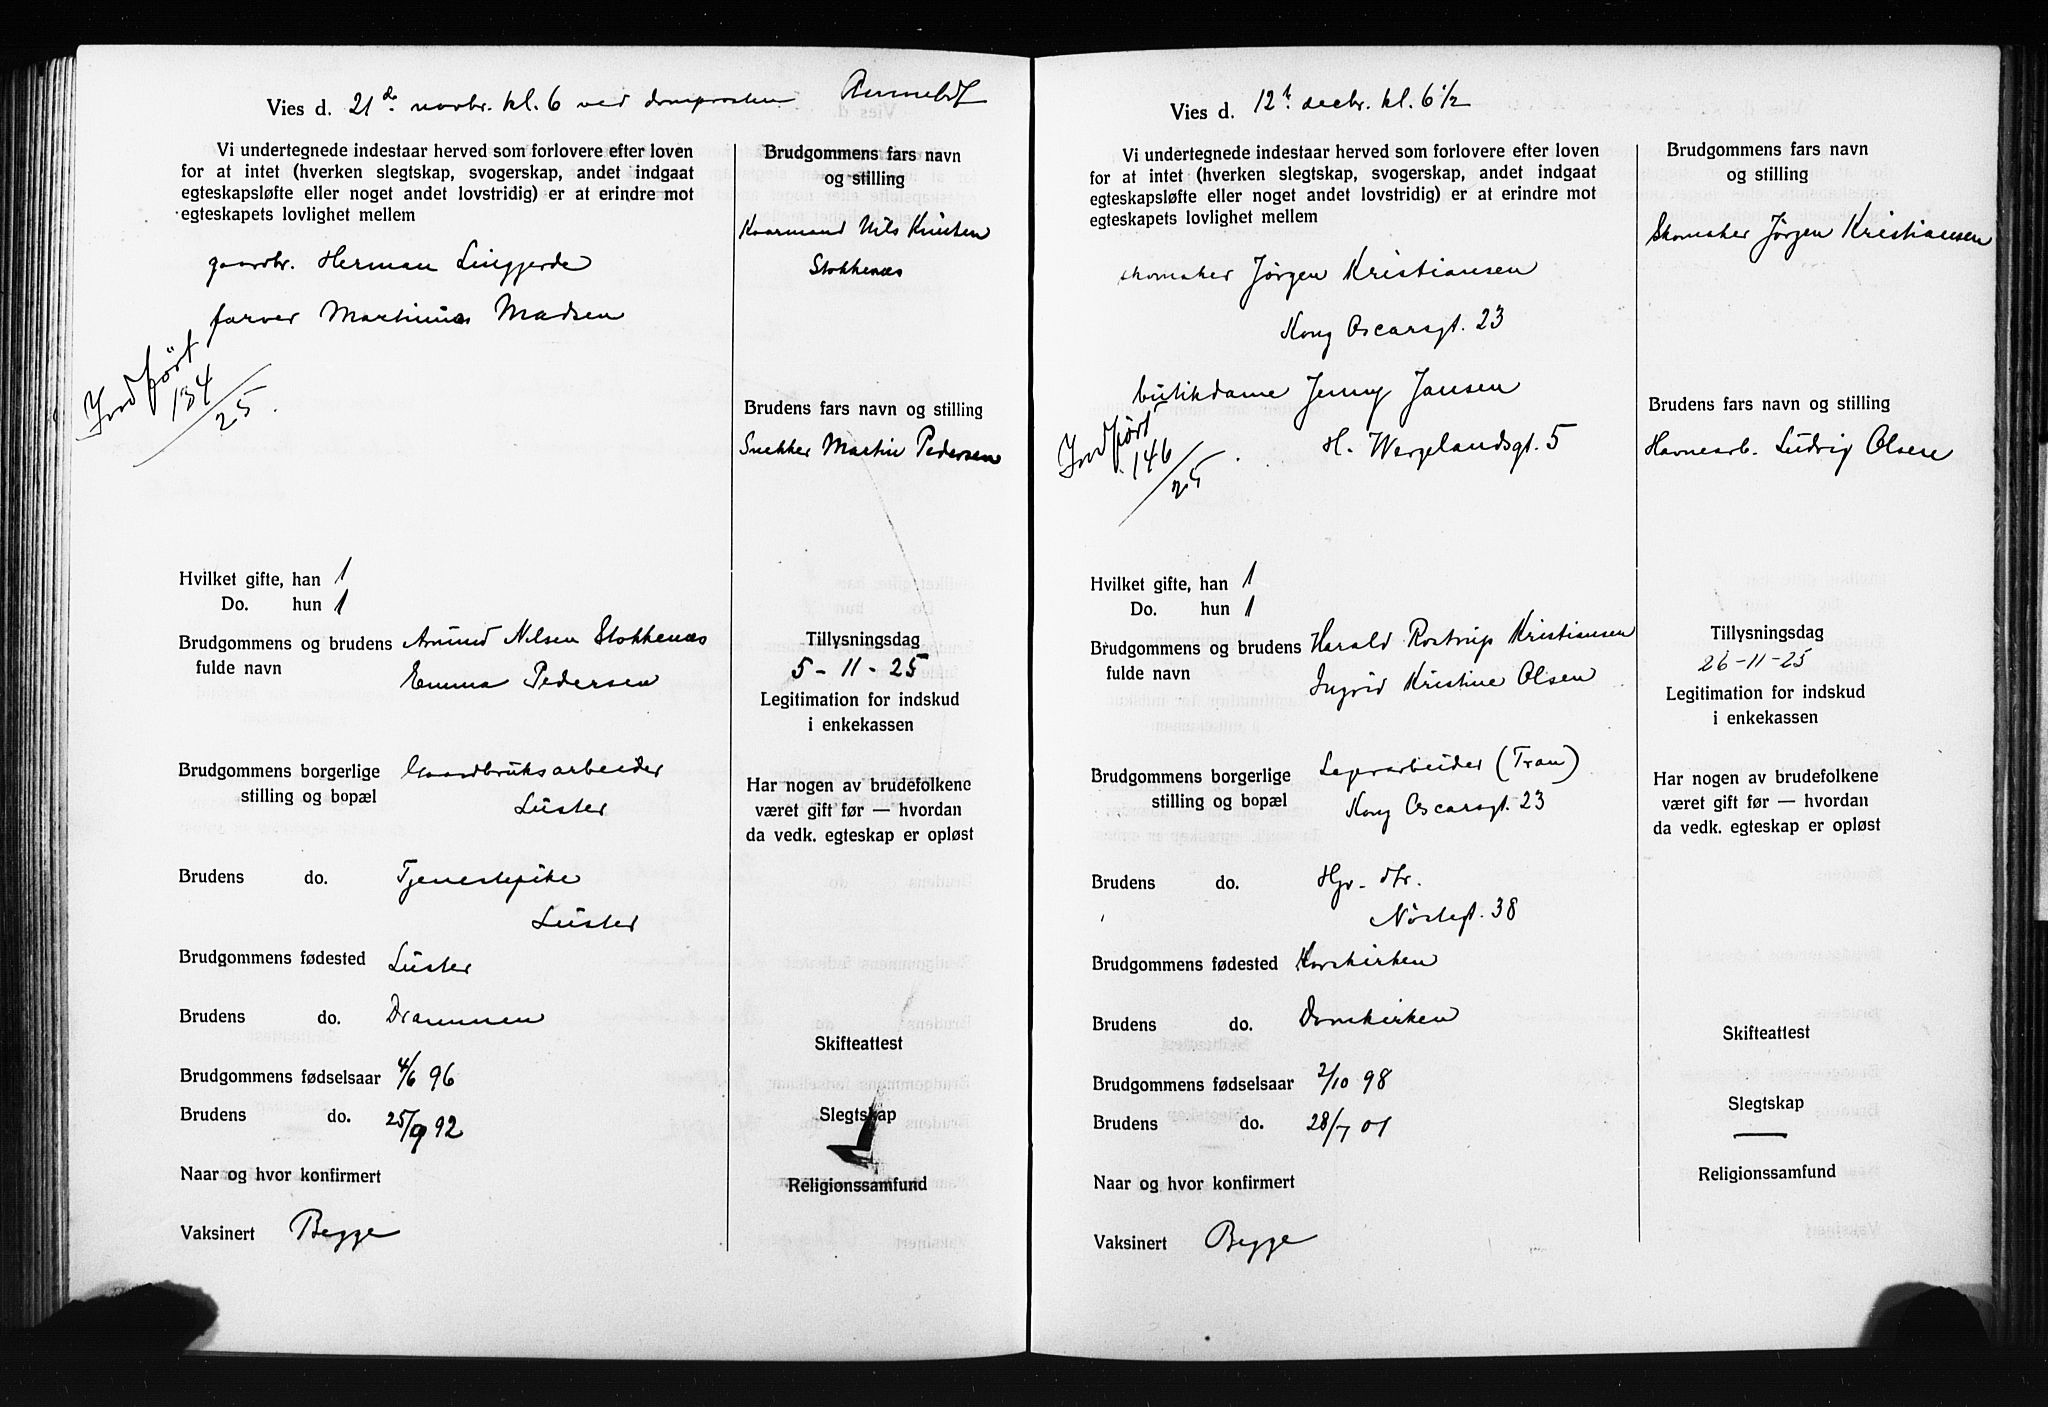 Vies d. 21de novbr. kl. 6 ved domprosten
Vi undertegnede indestaar herved som forlovere efter loven
for at intet (hverken slegtskap, svogerskap, andet indgaat
egteskapsløfte eller noget andet lovstridig) er at erindre mot
egteskapets lovlighet mellem
gaardbr. Herman Lingjerde
farver Martinus Madsen
Indført
134
25.
Hvilket gifte, han 1
Do. hun 1
Brudgommens og brudens Amund Nilsen Stokkenæs
fulde navn Emma Pedersen
Brudgommens borgerlige Gaardbruksarbeider
stilling og bopæl Luster
Brudens do. Tjenestepike
Luster
Brudgommens fødested Luster
Brudens do. Drammen
Brudgommens fødselsaar 4/6 96
Brudens do. 25/9 92
Naar og hvor konfirmert
Vaksinert Begge
Brudgommens fars navn
og stilling
Kaarmand Nils Knutsen
Stokkenæs
Brudens fars navn og stilling
Snekker Martin Pedersen
Tillysningsdag
5-11-25
Legitimation for indskud
i enkekassen
Har nogen av brudefolkene
været gift før — hvordan
da vedk. egteskap er opløst
Skifteattest
Slegtskap
Religionssamfund
Vies d. 12te decbr. kl. 6 1/2
Vi undertegnede indestaar herved som forlovere efter loven
for at intet (hverken slegtskap, svogerskap, andet indgaat
egteskapsløfte eller noget andet lovstridig) er at erindre mot
egteskapets lovlighet mellem
skomaker Jørgen Kristiansen
Kong Oscarsgt. 23
butikdame Jenny Jansen
H. Wergelandsgt. 5
Indført
146
25.
Hvilket gifte, han 1
Do. hun 1
Brudgommens og brudens Harald Rostrup Kristiansen
fulde navn Ingrid Kristine Olsen
Brudgommens borgerlige Lagerarbeider (Tran)
stilling og bopæl Kong Oscarsgt. 23
Brudens do. Hjv. dtr.
Nøstegt. 38
Brudgommens fødested Korskirken
Brudens do. Domkirken
Brudgommens fødselsaar 2/10 98
Brudens do. 28/7 01
Naar og hvor konfirmert
Vaksinert Begge
Brudgommens fars navn
og stilling
Skomaker Jørgen Kristiansen
Brudens fars navn og stilling
Havnearb. Ludvig Olsen
Tillysningsdag
26-11-25
Legitimation for indskud
i enkekassen
Har nogen av brudefolkene
været gift før — hvordan
da vedk. egteskap er opløst
Skifteattest
Slegtskap
—
Religionssamfund